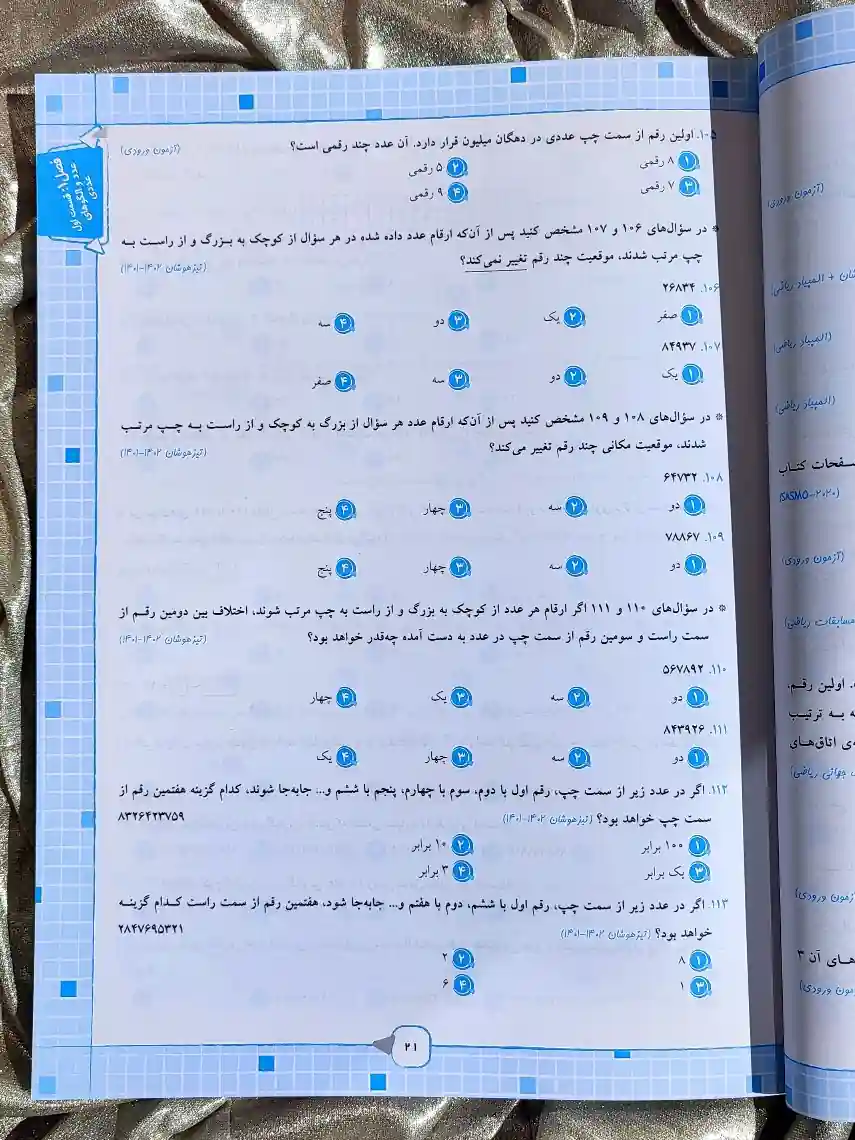 فصل ۱: قسمت اول
عدد و الگوهای
عددی
۱۰۵. اولین رقم از سمت چپ عددی در دهگان میلیون قرار دارد. آن عدد چند رقمی است؟ (آزمون ورودی)
۱ ۸ رقمی ۲ ۵ رقمی
۳ ۷ رقمی ۴ ۹ رقمی
* در سؤال‌های ۱۰۶ و ۱۰۷ مشخص کنید پس از آن‌که ارقام عدد داده شده در هر سؤال از کوچک به بزرگ و از راست به
چپ مرتب شدند، موقعیت چند رقم تغییر نمی‌کند؟ (تیزهوشان ۱۴۰۲-۱۴۰۱)
۱۰۶. ۲۶۸۳۴
۱ صفر ۲ یک ۳ دو ۴ سه
۱۰۷. ۸۴۹۳۷
۱ یک ۲ دو ۳ سه ۴ صفر
* در سؤال‌های ۱۰۸ و ۱۰۹ مشخص کنید پس از آن‌که ارقام عدد هر سؤال از بزرگ به کوچک و از راست به چپ مرتب
شدند، موقعیت مکانی چند رقم تغییر می‌کند؟ (تیزهوشان ۱۴۰۲-۱۴۰۱)
۱۰۸. ۶۴۷۳۲
۱ دو ۲ سه ۳ چهار ۴ پنج
۱۰۹. ۷۸۸۶۷
۱ دو ۲ سه ۳ چهار ۴ پنج
* در سؤال‌های ۱۱۰ و ۱۱۱ اگر ارقام هر عدد از کوچک به بزرگ و از راست به چپ مرتب شوند، اختلاف بین دومین رقم از
سمت راست و سومین رقم از سمت چپ در عدد به دست آمده چه‌قدر خواهد بود؟ (تیزهوشان ۱۴۰۲-۱۴۰۱)
۱۱۰. ۵۶۷۸۹۲
۱ دو ۲ سه ۳ یک ۴ چهار
۱۱۱. ۸۴۳۹۲۶
۱ دو ۲ سه ۳ چهار ۴ یک
۱۱۲. اگر در عدد زیر از سمت چپ، رقم اول با دوم، سوم با چهارم، پنجم با ششم و... جابه‌جا شوند، کدام گزینه هفتمین رقم از
سمت چپ خواهد بود؟ (تیزهوشان ۱۴۰۲-۱۴۰۱) ۸۳۲۶۴۲۳۷۵۹
۱ ۱۰۰ برابر ۲ ۱۰ برابر
۳ یک برابر ۴ ۳ برابر
۱۱۳. اگر در عدد زیر از سمت چپ، رقم اول با ششم، دوم با هفتم و... جابه‌جا شود، هفتمین رقم از سمت راست کدام گزینه
خواهد بود؟ (تیزهوشان ۱۴۰۲-۱۴۰۱) ۲۸۴۷۶۹۵۳۲۱
۱ ۸ ۲ ۲
۳ ۱ ۴ ۶
۲۱
(آزمون ورودی)
شان + المپیاد ریاضی)
(المپیاد ریاضی)
(المپیاد ریاضی)
صفحات کتاب
(SASMO-۲۰۲۰)
(آزمون ورودی)
مسابقات ریاضی)
. اولین رقم،
ه به ترتیب
ی اتاق‌های
جهانی ریاضی)
آزمون ورودی)
های آن ۳
مون ورودی)